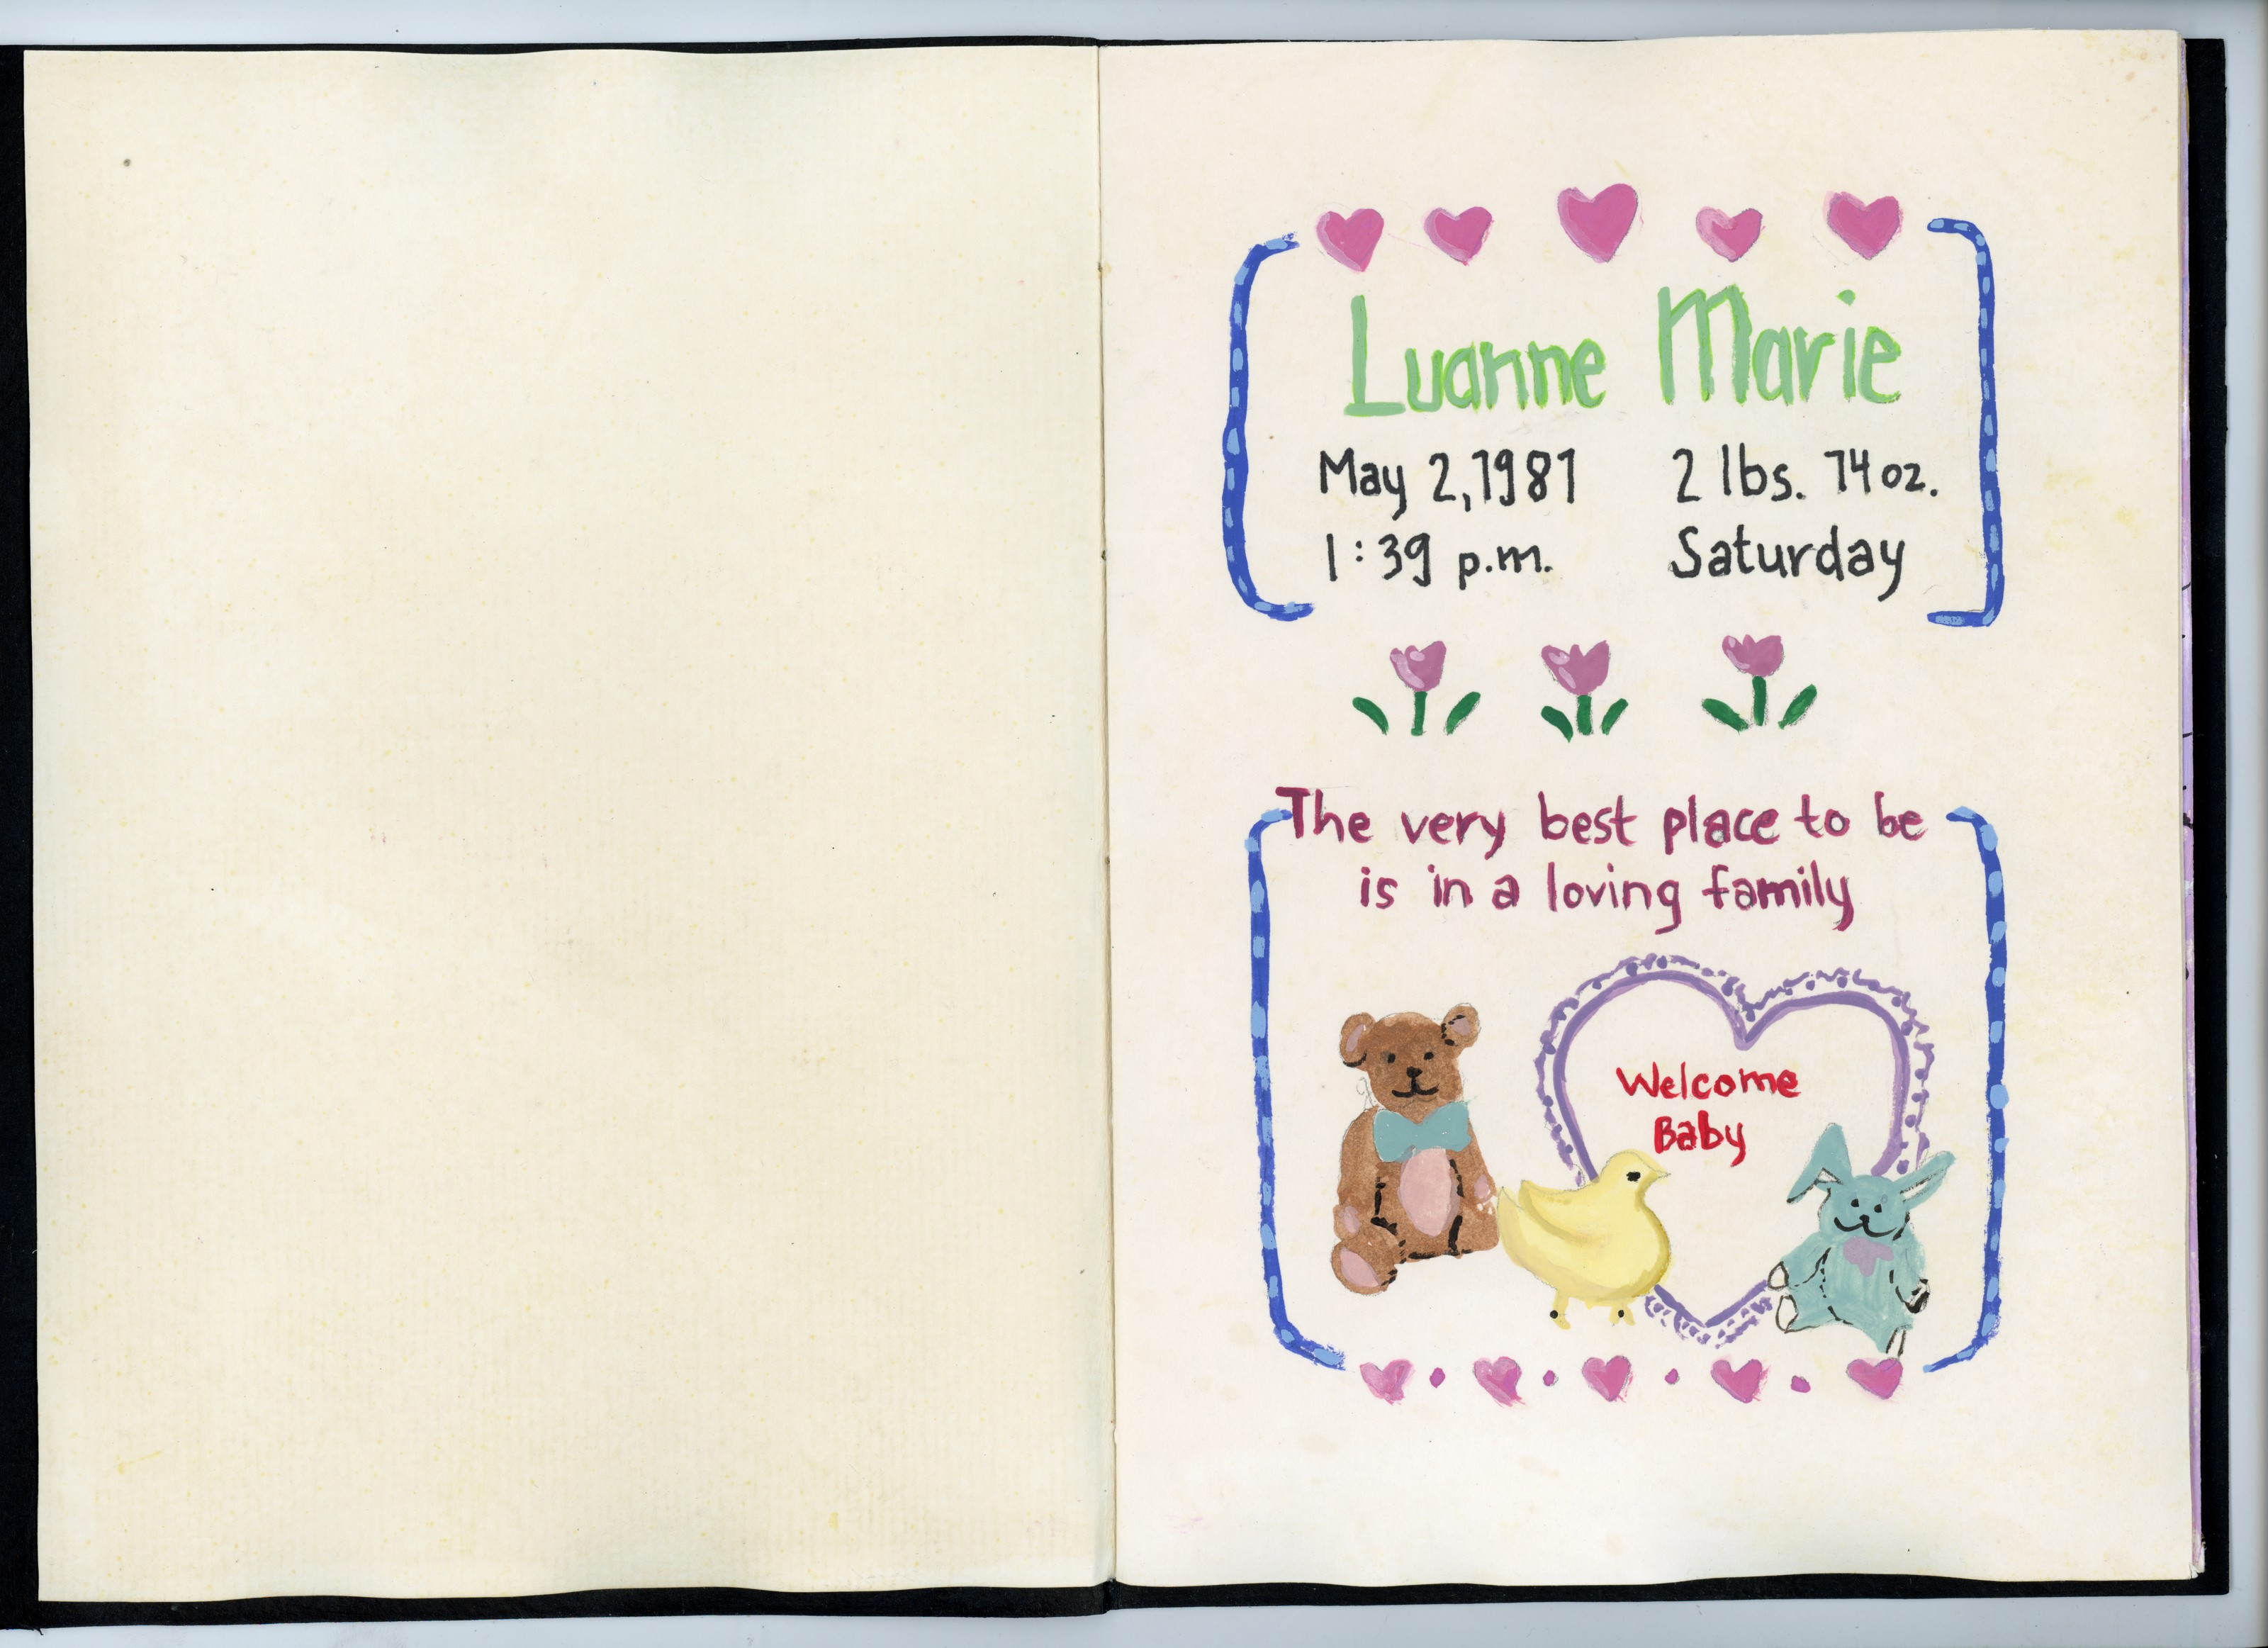 Luanne Marie
May 2, 1981 2 lbs. 14 oz.
1:39 p.m. Saturday
The very best place to be
is in a loving family
Welcome
Baby